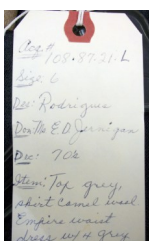 Acq.# 108.87.21.L
Size: 6
Des: Rodrigues
Don: Mr E.D. Jernigan
Dec: 70s
Item: Top grey,
skirt camel wool
Empire waist
dress w/4 grey